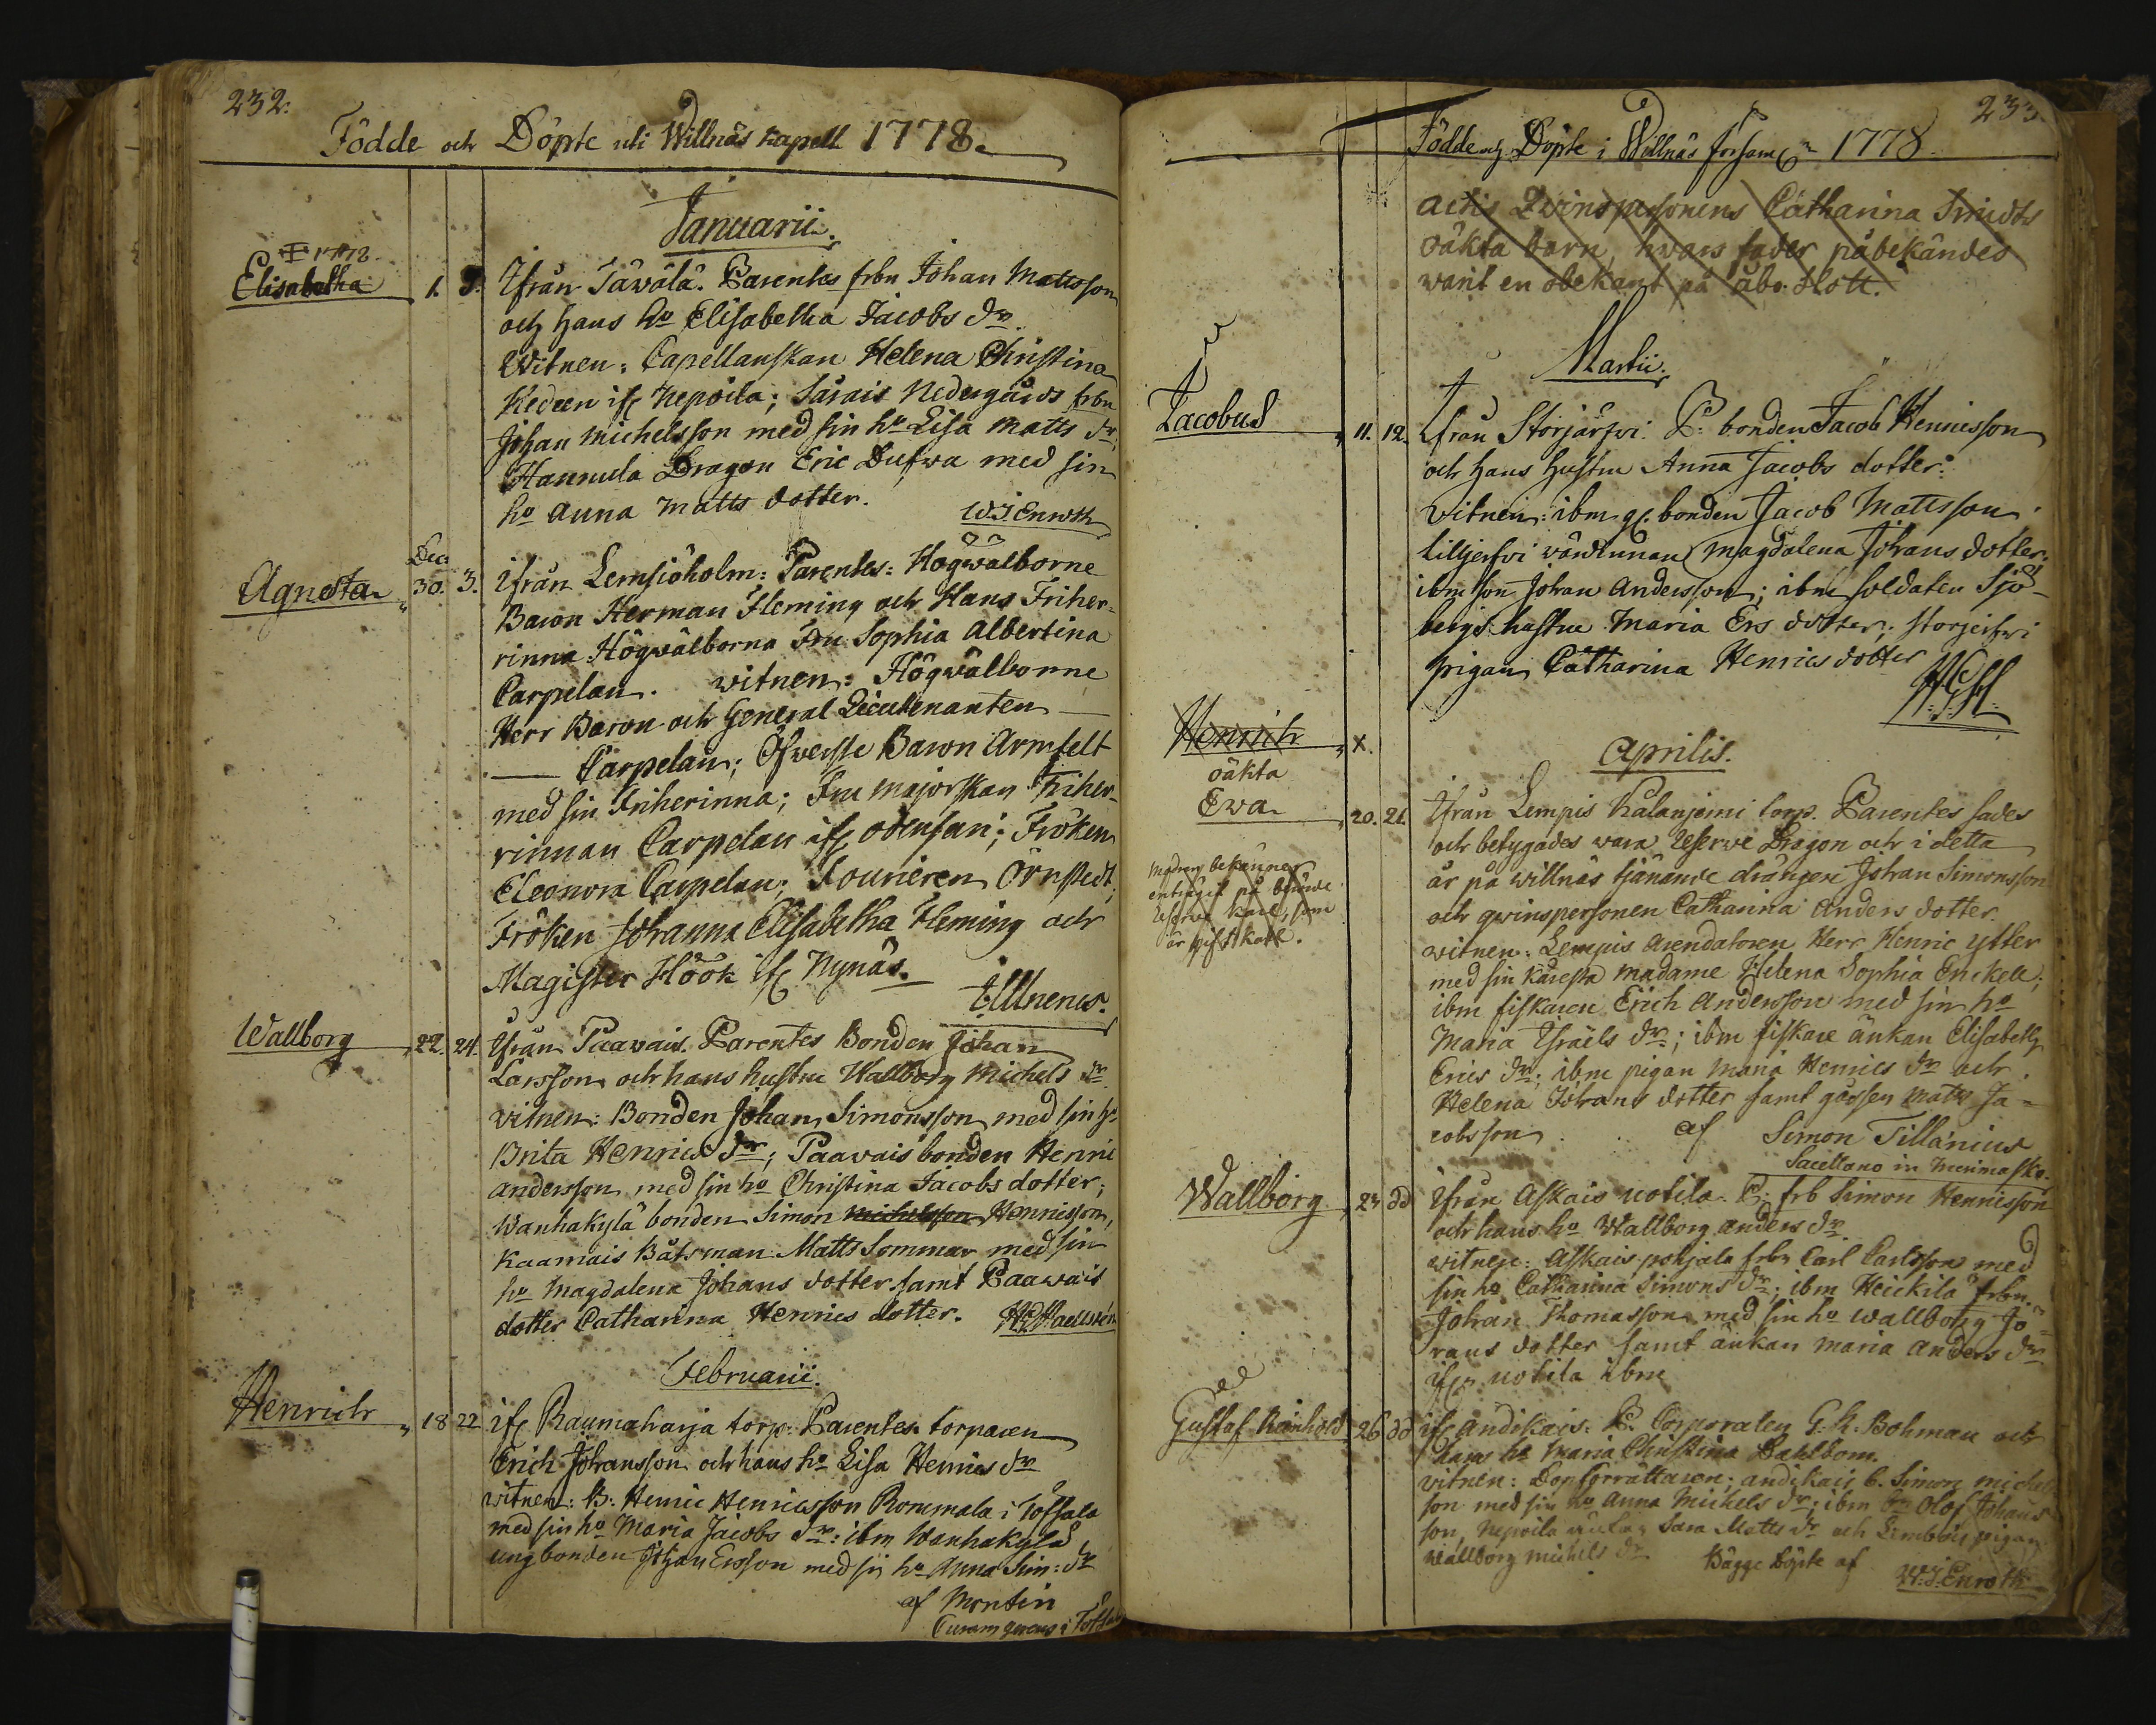 232.
Födde och Döpte uti Willnäs Kapell 1778.
Januarii.
1778.
Elisabetha 1. 3. Ifrån Täwälä. Parentes frbn Johan Mattsson
och hans ho Elisabetha Jacobs dr.
Witnen: Capellanskan Helena Christina
Kedeen if Nepoila; Särais Nedergårds frbn
Johan Michelsson med sin ho Lisa Matts dr;
Hannula Dragon Eric Dufwa med sin
ho Anna Matts dotter.
W.J. Enroth
Dec:
Agneta 30. 3. ifrån Lemsiöholm: Parentes: Högwälborne
Baron Herman Fleming och Hans Friher=
rinna Högwälborna Fru Sophia Albertina
Carpelan. witnen: Högwälborne
Herr Baron och General Lieutenanten
Carpelan; Öfwerste Baron Armfelt
med sin Friherinna; Fru Majorskan Friher=
rinnan Carpelan if Odensari; Fröken
Eleonora Carpelan; Fourieren Örnstedt;
Fröken Johanna Elisabetha Fleming och
Magister Höök if Nynäs.
Wallborg 22. 24. Ifrån Paawais. Parentes Bonden Johan
Larsson och hans hustru Wallborg Michels dr
vitnen: Bonden Johan Simonsson med sin ho
Brita Henrics dr; Paavais bonden Henric
Andersson med sin ho Christina Jacobs dotter;
Wanhakylä bonden Simon Michelsson Henricsson,
Kaamais Båtsman Matts Sommar med sin
ho Magdalena Johans dotter samt Paawais
dotter Catharina Henrics dotter.
Februarii.
Henrich 18 22 if Raumaharja torp. Parentes torparen
Erich Johansson och hans ho Lisa Henrics dr
witnen: B: Henric Henricsson Rommala i Tofsala
med sin ho Maria Jacobs dr: ibm Wanhakylä
ung bonden Johan Ersson med sin ho Anna Sim: dr
af Montin
Curam gerens i
233.
Födde och Döpte i Willnäs församl:n 1778
Qwinspersonens Catharina Smidts
oäkta barn, hwars fader påbekändes
warit en obekant på Åbo slott.
Martii.
Jacobus 11. 12. Ifrån Storjärfwi. P: bonden Jacob Henricsson
och hans hustru Anna Jacobs dotter:
Vitnen: ibm gl. bonden Jacob Mattsson
Liljerfwi wärdinnan Magdalena Johans dotter;
ibm son Johan Andersson; ibm soldaten Sjö-
bergs hustru Maria Ers dotter; Storjerfwi
pigan Catharina Henrics dotter
Aprilis.
Henrich x.
oäkta
Ewa 20. 21. Ifrån Lempis Kalanjemi torp. Parentes sades
och betygades wara Reserwe Dragon och i detta
år på Willnäs tjänande drängen Johan Simonsson
och qwinspersonen Catharina Anders dotter.
witnen: Lempis Arendatoren Herr Henric Ytter
med sin käresta Madame Helena Sophia Enckell;
ibm fiskaren Erich Andersson med sin ho
Maria Israels dr; ibm fiskare änkan Elisabeth
Erics dr; ibm pigan Maria Henrics dr och
Helena Johans dotter samt gossen Matts Ja=
cobsson. af Simon Tillänius
Sacellano in Merimasku
Modren bekänner
enträget på
Reserve Karl, som
är gift karl.
Wallborg 23 dd Ifrån Askais Uotila. P: frb Simon Henricsson
och hans ho Wallborg Anders dr.
witnen: Askais pohjala frbn Carl Carlsson med
sin ho Catharina Simons dr; ibm Heickilä frbn
Johan Thomasson med sin ho Wallborg Jo=
hans dotter samt änkan Maria Anders dr
ifrn Uotila ibm
Gustaf Reinhold 26 dd if Andikais: P: Corporalen G. R. Bohman och
hans ho Maria Christina Dahlbom.
vitnen: Dopförrättaren; Andikais b. Simon Michels
son med sin ho Anna Michels dr; ibm Olof Johans
son, Nepoila Sara Matts dr och Lembois pigan
Wallborg Michels dr Bägge Döpte af W:J: Enroth